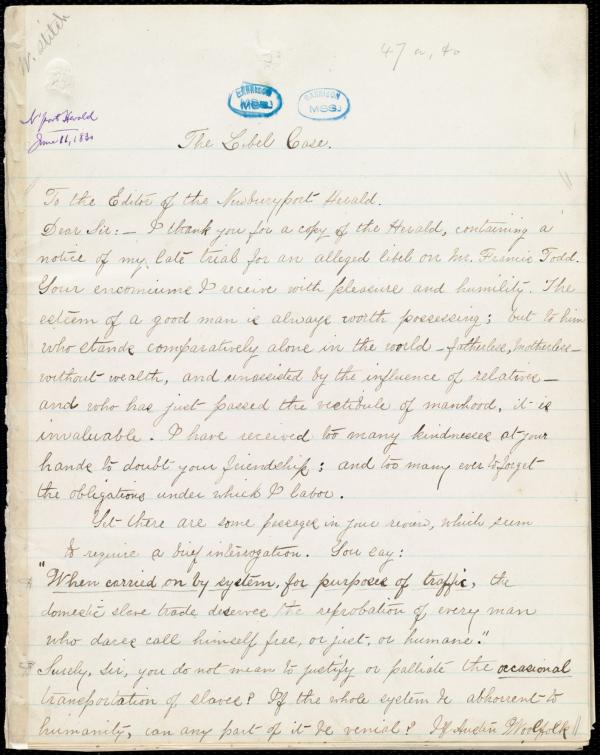 W. stitch
47 a, to
GARRISON
MSS.
GARRISON
MSS.
N'port Herald
June 11, 1830
The Libel Case.
To the Editor of the Newburyport Herald.
Dear Sir:— I thank you for a copy of the Herald, containing a
notice of my late trial for an alleged libel on Mr. Francis Todd.
Your encomiums I receive with pleasure and humility. The
esteem of a good man is always worth possessing; but to him
who stands comparatively alone in the world — fatherless, motherless —
without wealth, and unassisted by the influence of relatives —
and who has just passed the vestibule of manhood, it is
invaluable. I have received too many kindnesses at your
hands to doubt your friendship; and too many ever to forget
the obligations under which I labor.
Yet there are some passages in your review, which seem
to require a brief interrogation. You say:
"When carried on by system, for purposes of traffic, the
domestic slave trade deserves the reprobation of every man
who dares call himself free, or just, or humane."
Surely, sir, you do not mean to justify or palliate the occasional
transportation of slaves? If the whole system be abhorrent to
humanity, can any part of it be venial? If Austin Woolfolk